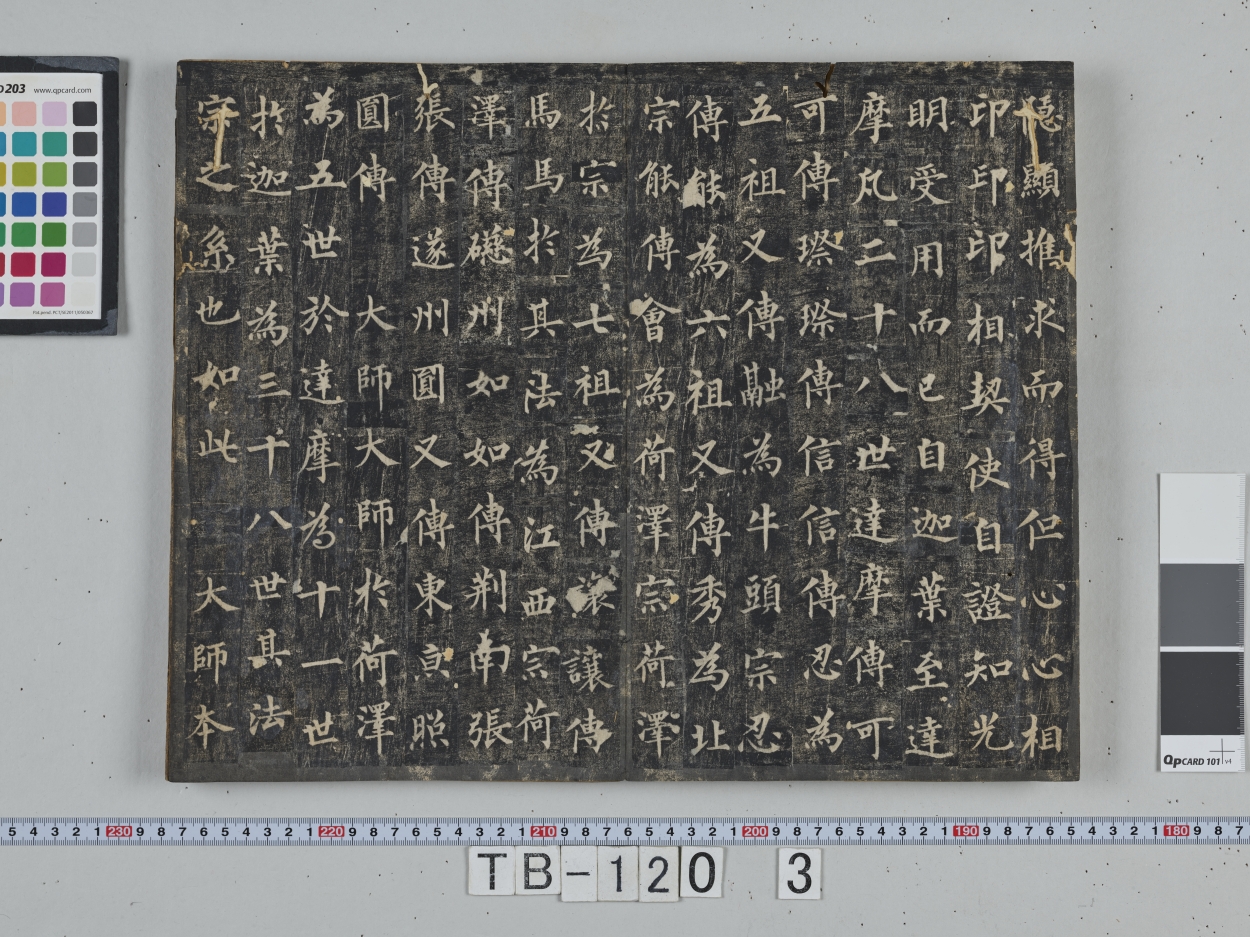 隱顯推求而得但心心相
印印印相契使自證知光
明受用而已自迦葉至達
摩凡二十八世達摩傳可
可傳璨璨傳信信傳忍為
五祖又傳融為牛頭宗忍
傳能為六祖又傳秀為北
宗能傳會為荷澤宗荷澤
於宗為七祖又傳讓讓傳
馬馬於其法為江西宗荷
澤傳礠州如如傳荆南張
張傳遂州圓圓又傳東亰照
圓傳 大師大師於荷澤
為五世於達摩為十一世
於迦葉為三十八世其法
宗之系也如此 大師本
203 www.qpcard.com
QpCARD 101 v4
5 4 3 2 1 230 9 8 7 6 5 4 3 2 1 220 9 8 7 6 5 4 3 2 1 210 9 8 7 6 5 4 3 2 1 200 9 8 7 6 5 4 3 2 1 190 9 8 7 6 5 4 3 2 1 180 9 8 7
TB-120 3